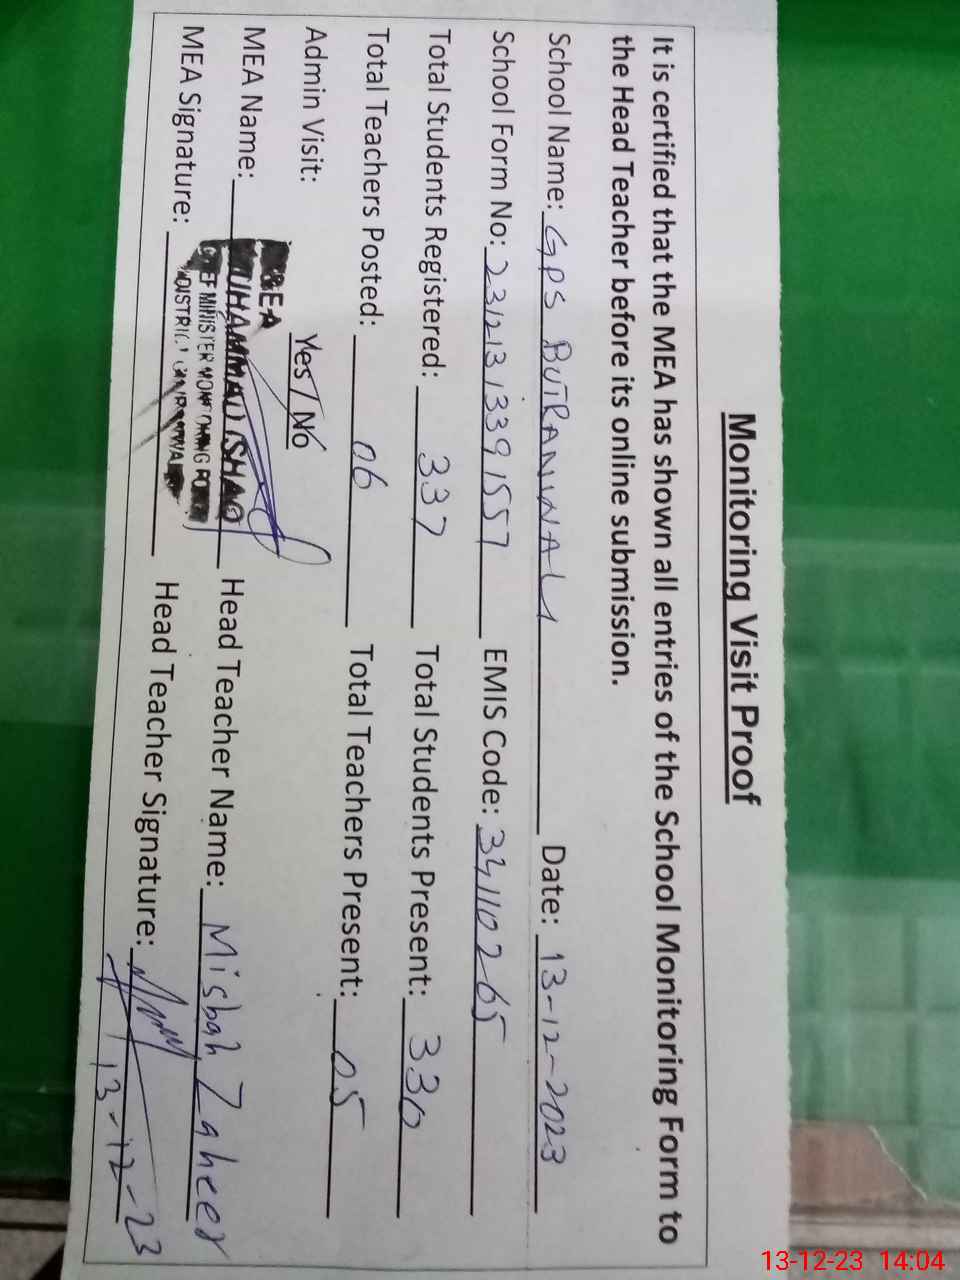 Monitoring Visit Proof
It is certified that the MEA has shown all entries of the School Monitoring Form to
the Head Teacher before its online submission.
School Name: GPS BUTRANWALI Date: 13-12-2023
School Form No: 231213133915 57 EMIS Code: 34110265
Total Students Registered: 337 Total Students Present: 330
Total Teachers Posted: 06 Total Teachers Present: 05
Admin Visit: Yes / No
MEA
MEA Name: MUHAMMAD ISHAQ Head Teacher Name: Misbah Zaheer
CHIEF MINISTER MONITORING FORCE
MEA Signature: DISTRICT GUJRANWALA Head Teacher Signature:
13-12-23
13-12-23 14:04